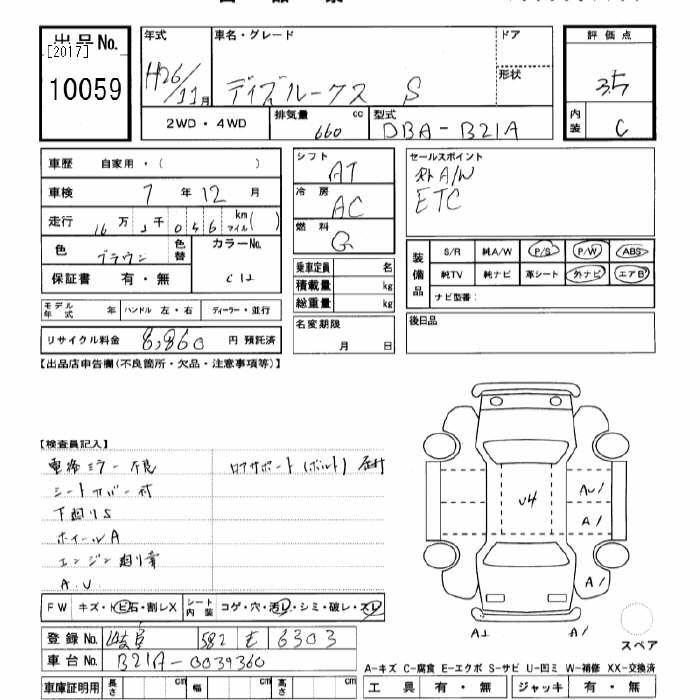 出品No. 年式 車名・グレード ドア 評価点
[2017]
10059 H26/11月 デイズルークス S 形状 3.5
2WD・4WD 排気量 cc 型式 内装
660 DBA-B21A C
車歴 自家用・( ) シフト AT セールスポイント
車検 7年 12月 冷房 AC 社外A/W
ETC
走行 16万 2千 0 5 6 km マイル( ) 燃料 G
色 ブラウン 色替 カラーNo.
保証書 有・無 C12
乗車定員 名
積載量 kg
総重量 kg
装備品 S/R 純A/W P/S P/W ABS
純TV 純ナビ 革シート 外ナビ エアB
ナビ型番:
モデル年式 年 ハンドル 左・右 ディーラー・並行
名変期限 月 日 後日品
リサイクル料金 8,860 円 預託済
【出品店申告欄(不良箇所・欠品・注意事項等)】
【検査員記入】
電格ミラー不良 ロアサポート(ボルト)
シートカバー付
下廻りS
ホイールA
エンジン廻り
A.U.
U4
AU1
A1
A1
FW キズ・トビ石・割レX シート内装 コゲ・穴・汚レ・シミ・破レ・スレ
A2 A1
スペア
登録No. 岐阜 582 そ 6303
車台No. B21A-0039360
A-キズ C-腐食 E-エクボ S-サビ U-凹ミ W-補修 XX-交換済
車庫証明用 長さ cm 幅 cm 高さ cm 工具 有・無 ジャッキ 有・無